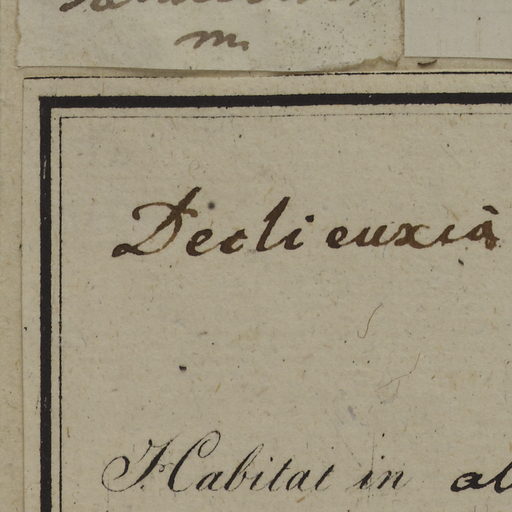 m.
Declieuxià
Habitat in al